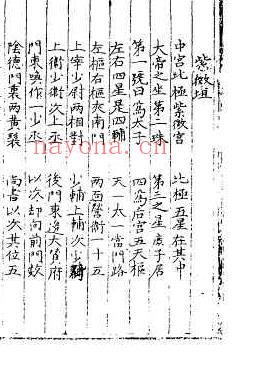 紫微垣
中宮北極紫微宮　北極五星在其中
大帝之坐第二珠　第三之星庶子居
第一號曰為太子　四為后宮五天樞
左右四星是四輔　天一太一當門路
左樞右樞夾南門　兩面營衛一十五
上宰少尉两相對　少輔上輔次少
上衛少衛次上丞　後門東邉大贊府
門東喚作一少丞　以次却向前門數
陰德門裏两黃聚　尚書以次其位五
nayona.cn